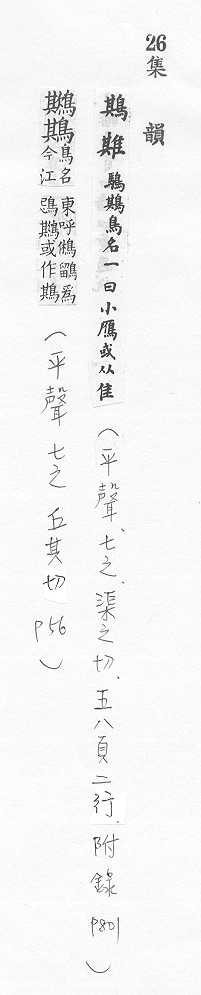 26 集韻
鶀䧵 騹鶀鳥名一曰小鴈或从隹(平聲、七之、渠之切、五八頁二行、附錄 P801)
鶀 鳥名今江東呼鵂鶹為鶀或作(平聲 七之 丘其切 P56)